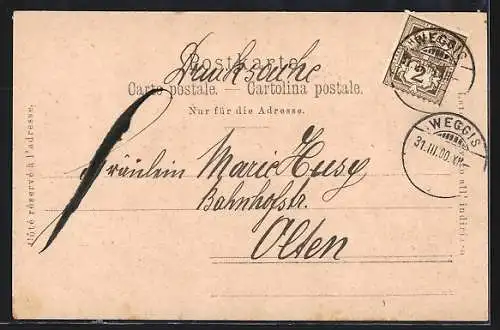 Postkarte
Drucksache
Carte postale. — Cartolina postale.
Nur für die Adresse.
Fräulein Marie Husy
Bahnhofstr.
Olten
Côté réservé à l'adresse.
WEGGIS
2
WEGGIS
31.III.00.XII